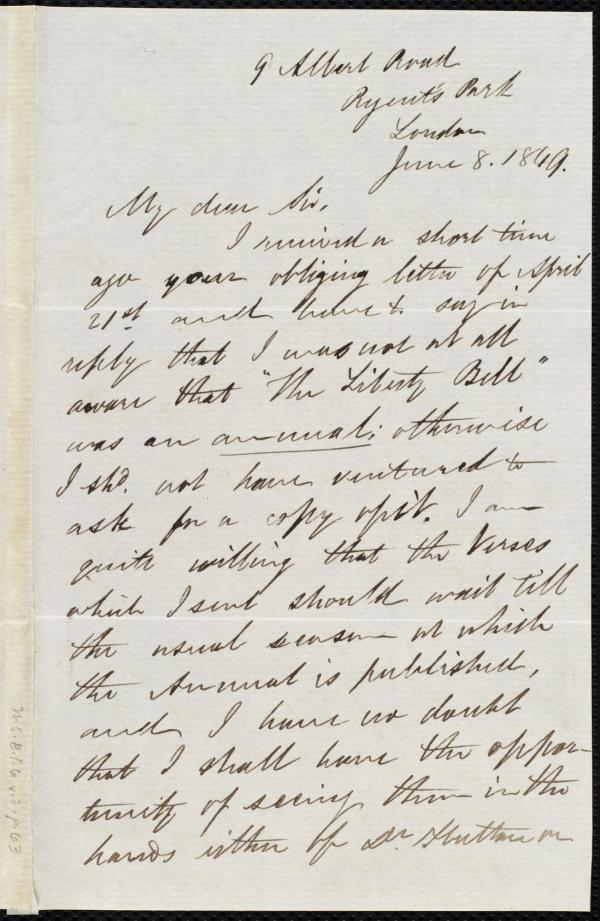 9 Albert Road
Regent's Park
London
June 8. 1849.
My dear Sir,
I received a short time
ago your obliging letter of April
21st and have to say in
reply that I was not at all
aware that "The Liberty Bell"
was an annual; otherwise
I shd. not have ventured to
ask for a copy of it. I am
quite willing that the Verses
which I sent should wait till
the usual season at which
the Annual is published,
and I have no doubt
that I shall have the oppor-
tunity of seeing them in the
hands either of Dr. Hutton or